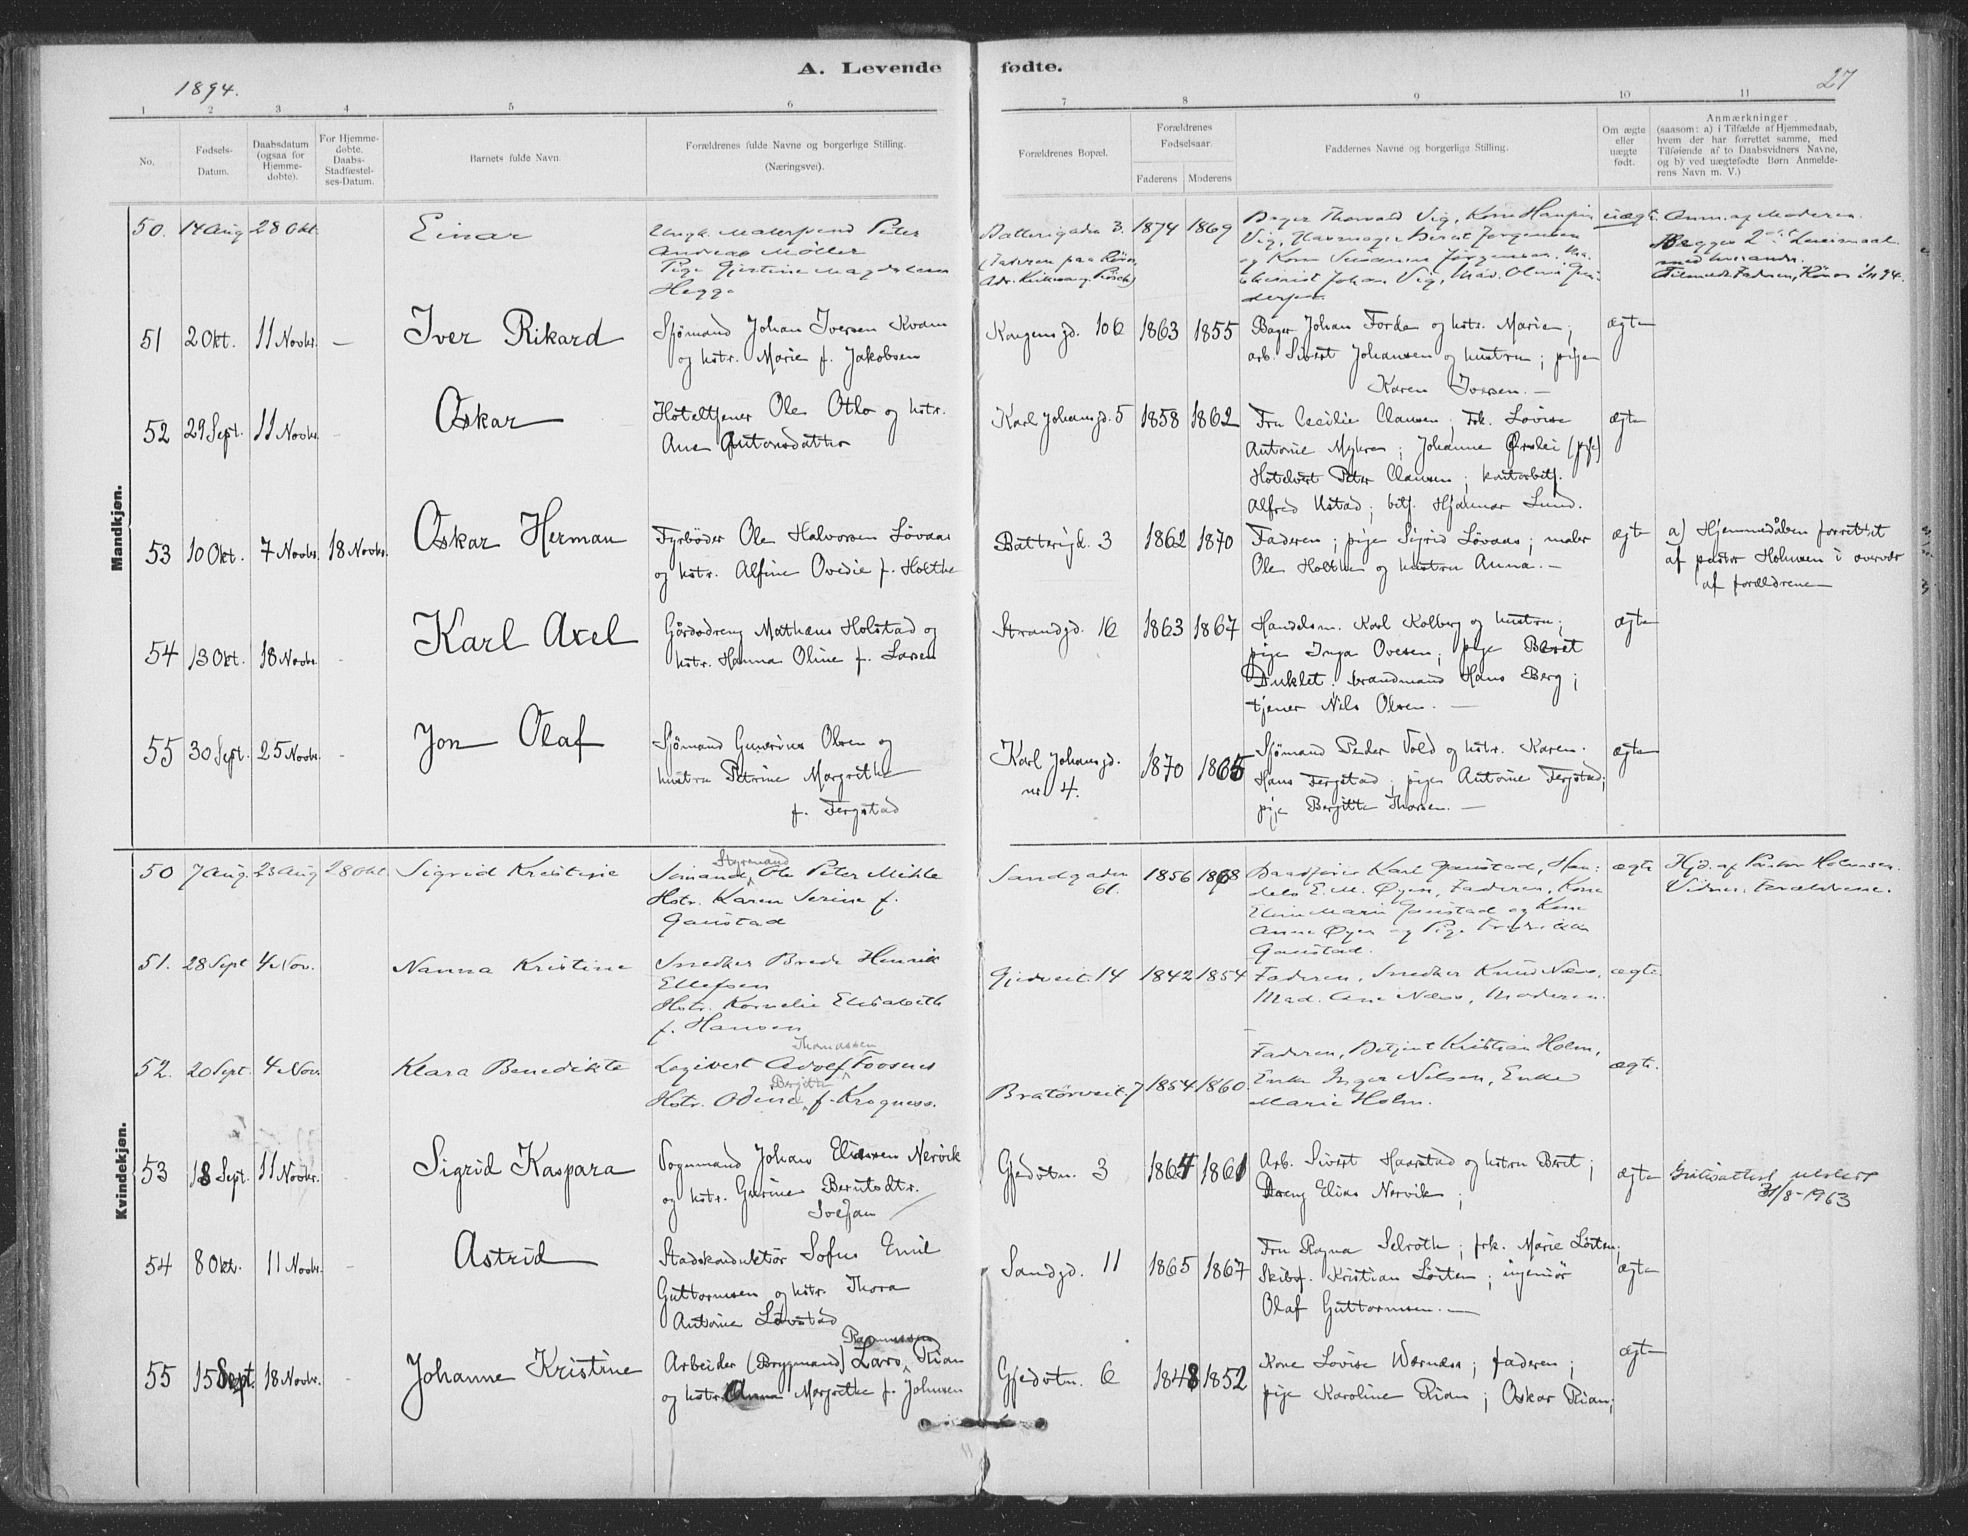 A. Levende fødte.
1894.
27
1 2 3 4 5 6 7 8 9 10 11
No.
Fødsels-
Datum.
Daabsdatum
(ogsaa for
Hjemme-
døbte).
For Hjemme-
døbte.
Daabs-
Stadfæstel-
ses-Datum.
Barnets fulde Navn.
Forældrenes fulde Navne og borgerlige Stilling.
(Næringsvei).
Forældrenes Bopæl.
Forældrenes
Fødselsaar.
Faderens Moderens
Faddernes Navne og borgerlige Stilling.
Om ægte
eller
uægte
født.
Anmærkninger
(saasom: a) i Tilfælde af Hjemmedaab,
hvem der har forrettet samme, med
Tilføiende af to Daabsvidners Navne,
og b) ved uægtefødte Børn Anmelde-
rens Navn m. V.)
Mandkjøn.
50. 14 Aug 28 Okt. Einar
Ungk. Malersvend Peter
Andreas Möller
Pige Gjertine Magdalena
Hegge
Batterigaden 3.
(Faderen paa Röros
1874 1869
Bager Thorvald Vig, Kone
Vig, Berat Jørgensen
og Kone Jørgensen,
Johan Vig,
uægte.
Anm. af Moderen.
Begges 2det Leiermaal
med hverandre.
51 2 Okt. 11 Novbr. – Iver Rikard
Sjømand Johan Iversen Kvam
og hstr. Marie f. Jakobsen
Kongensgd. 106 1863 1855
Bager Johan Forda og hstr. Marie;
arb. Sivert Johansen og hustru; pige
Karen Iversen. –
ægte
52 29 Sept. 11 Novbr. - Oskar
Hoteltjener Ole Otlo og hstr.
Ane Antonsdatter
Karl Johansgd. 5 1858 1862
Fru Cecilie Clausen; Frk. Lovise
Antonie Myhren; Johanne (pige)
Hotelvert Peter Clausen; kontorbetj.
Alfred Ustad; betj. Hjalmar Lund.
ægte
53 10 Okt. 7 Novbr. 18 Novbr. Oskar Herman
Fyrbøder Ole Halvorsen Løvaas
og hstr. Alfine Ovedie f. Holthe
Batterigd. 3 1862 1870
Faderen; pige Sigrid Løvaas; maler
Ole Holthe og hustru Anna. –
ægte
a) Hjemmedåben forrettet
af pastor Holmsen i overvær
af forældrene
54 13 Okt. 18 Novbr. - Karl Axel
Gårdsdreng Mathæus Holstad og
hstr. Hanna Oline f. Larsen
Strandgd. 16 1863 1867
Handelsm. Karl Kolberg og hustru;
pige Inga Ovesen; pige Beret
Duklet. brandmand Hans Berg;
tjener Nils Olsen. –
ægte
55 30 Sept. 25 Novbr. - Jon Olaf
Sjømand Gunerius Olsen og
hustru Petrine Margrethe
f. Fergstad
Karl Johansgd.
nr. 4. 1870 1865
Sjømand Peder Vold og hstr. Karen.
Hans Fergstad; pige Antonie Fergstad;
pige Bergitte Thorsen. –
ægte
Kvindekjøn.
50 7 Aug. 23 Aug 28 Okt. Sigrid Kristine
Styrmand
Sømand, Ole Peter Mihle
Hstr. Karen Serine f.
Gaustad
Sandgaden
61. 1856 1868
Karl Gaustad, Han-
dels E. M. Øyen, Faderen, Kone
Marie Gaustad og Kone
Anne Øyen og Pige Fredrikka
Gaustad.
ægte
Hjd. af Pastor Holmsen.
Vidner: Forældrene.
51. 28 Sept 4 Nov. Nanna Kristine
Snedker Brede Henrik
Ellefsen
Hstr. Kornelie Elisabeth
f. Hansen
Gjedveit. 14 1842 1854
Faderen, Snedker Knud Næss,
Mad. Ane Næss, Moderen.
ægte.
52. 20 Sept. 4 Nov. Klara Benedikte
Thomassen
Logivert Adolf Foosnes
Bergitte
Hstr. Odine f. Krogness.
Bratørveit. 7 1854 1860.
Faderen, Betjent Kristian Holm,
Enke Inger Nilsen, Enke
Marie Holm.
ægte.
53 18 Sept. 11 Novbr. Sigrid Kaspara
Vognmand Johan Eliassen Nervik
og hstr. Gurine Berntsdtr.
Svejan
Gjedvtn. 3 1864 1861
Arb. Sivert Haarstad og hstru Beret;
Dreng Elias Nervik;
ægte
Gratisattest utstedt
31/8-1963
54 8 Okt. 11 Novbr. - Astrid
Stadskonduktør Sofus Emil
Guttormsen og hstr. Thora
Antonie Løvstad
Sandgd. 11 1865 1867
Fru Ragna Selroth; frk. Marie Lorten
Skibsf. Kristian Lorten; ingeniør
Olaf Guttormsen. –
ægte
55 15 Sept. 18 Novbr. - Johanne Kristine
Rasmussen
Arbeider (Brygmand) Lars, Rian
og hstr. Anna Margrethe f. Johnsen
Gjedvtn. 6 1848 1852
Kone Lovise Wærness; faderen;
pige Karoline Rian; Oskar Rian;
ægte